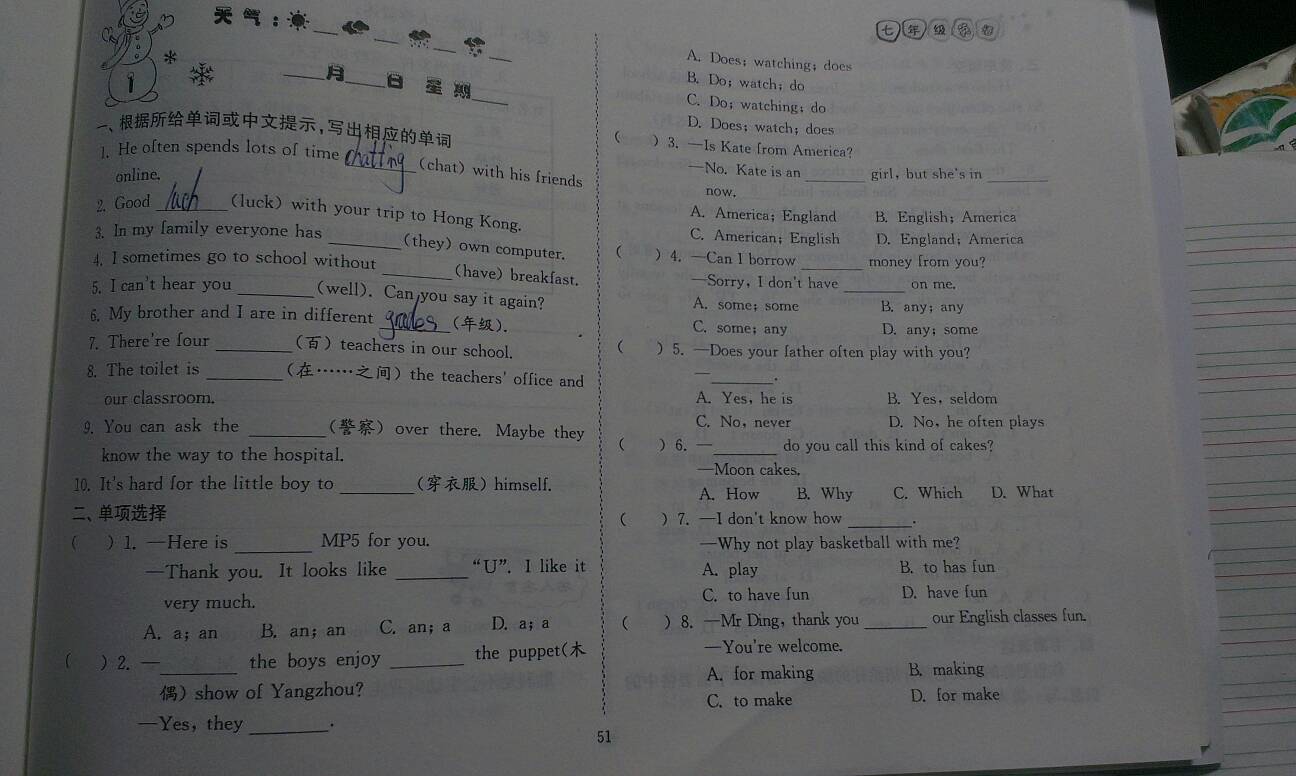 天气：
月 日 星期
一、根据所给单词或中文提示,写出相应的单词
1. He often spends lots of time chatting (chat) with his friends
online.
2. Good luck (luck) with your trip to Hong Kong.
3. In my family everyone has ________ (they) own computer.
4. I sometimes go to school without ________ (have) breakfast.
5. I can't hear you ________ (well). Can you say it again?
6. My brother and I are in different grades (年级).
7. There're four ________ (百) teachers in our school.
8. The toilet is ________ (在……之间) the teachers' office and
our classroom.
9. You can ask the ________ (警察) over there. Maybe they
know the way to the hospital.
10. It's hard for the little boy to ________ (穿衣服) himself.
二、单项选择
( ) 1. —Here is ________ MP5 for you.
—Thank you. It looks like ________ “U”. I like it
very much.
A. a; an B. an; an C. an; a D. a; a
( ) 2. —________ the boys enjoy ________ the puppet(木
偶) show of Yangzhou?
—Yes, they ________.
七年级
A. Does; watching; does
B. Do; watch; do
C. Do; watching; do
D. Does; watch; does
( ) 3. —Is Kate from America?
—No. Kate is an ________ girl, but she's in ________
now.
A. America; England B. English; America
C. American; English D. England; America
( ) 4. —Can I borrow ________ money from you?
—Sorry, I don't have ________ on me.
A. some; some B. any; any
C. some; any D. any; some
( ) 5. —Does your father often play with you?
—________.
A. Yes, he is B. Yes, seldom
C. No, never D. No, he often plays
( ) 6. —________ do you call this kind of cakes?
—Moon cakes.
A. How B. Why C. Which D. What
( ) 7. —I don't know how ________.
—Why not play basketball with me?
A. play B. to has fun
C. to have fun D. have fun
( ) 8. —Mr Ding, thank you ________ our English classes fun.
—You're welcome.
A. for making B. making
C. to make D. for make
51